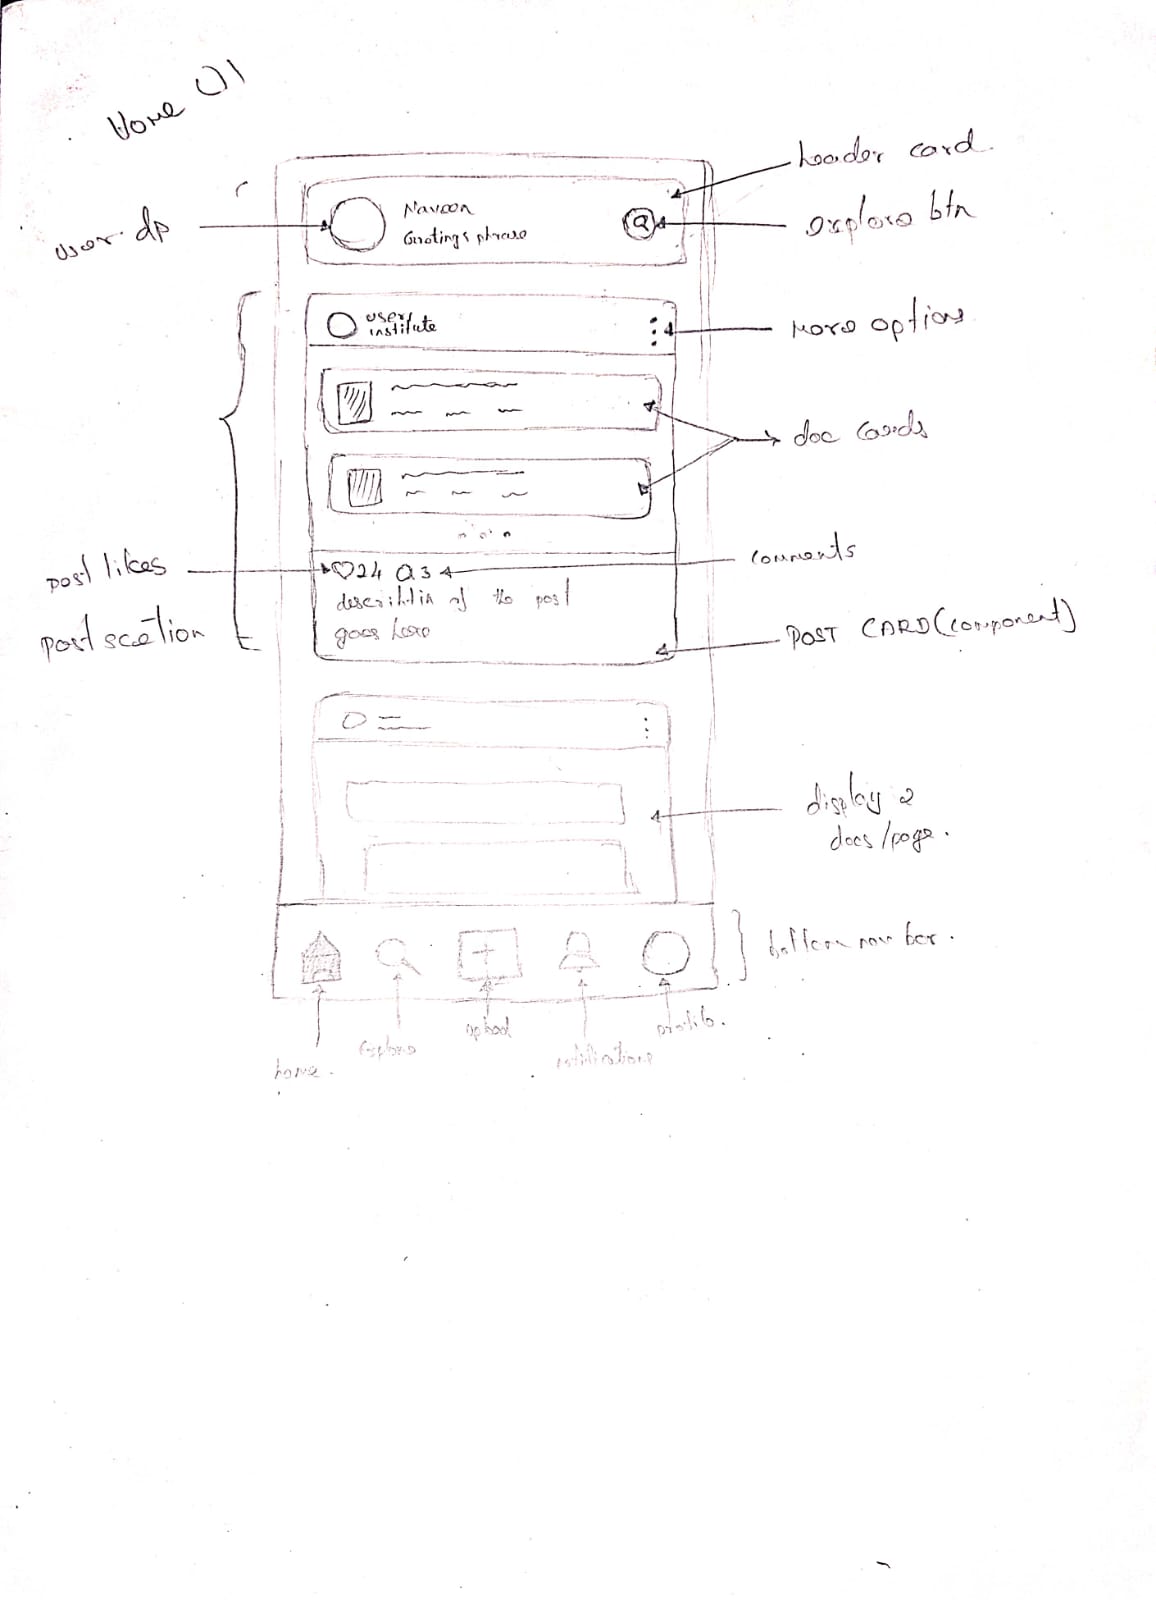 Home UI
header card.
user dp
Naveen
Greetings phrase
explore btn
user/
institute
More options
doc cards
post likes
24 3
comments
description of the post
goes here
post section
POST CARD (component)
display 2
docs/page.
bottom nav bar.
home.
explore
upload
notifications
profile.